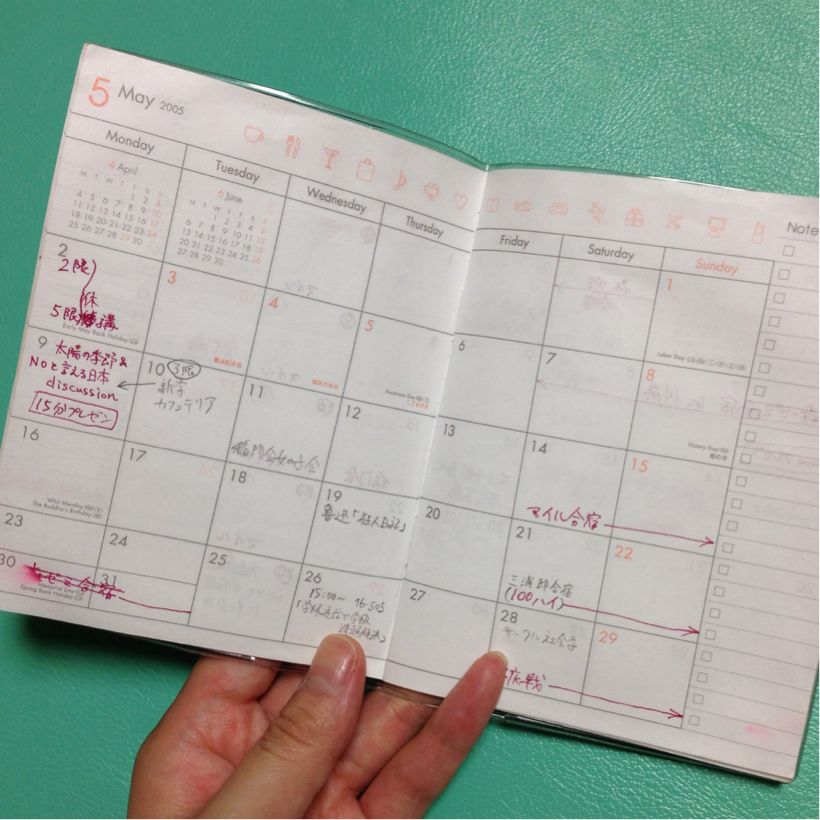 5 May 2005
Monday
Tuesday
Wednesday
Thursday
Friday
Saturday
Sunday
Note
4 April
M T W T F S S
1 2 3
4 5 6 7 8 9 10
11 12 13 14 15 16 17
18 19 20 21 22 23 24
25 26 27 28 29 30
6 June
M T W T F S S
1 2 3 4 5
6 7 8 9 10 11 12
13 14 15 16 17 18 19
20 21 22 23 24 25 26
27 28 29 30
1
Labor Day
2
2限
休
5限
講
Early May Bank Holiday
3
憲法記念日
4
国民の休日
5
Ascension Day
こどもの日
6
7
8
Victory Day
母の日
9
太陽の季節&
Noと言える日本
discussion
15分プレゼン
10
3限
新学
カフェテリア
11
12
13
14
マイル合宿
15
16
The Buddha's Birthday
17
18
19
魯迅「狂人日記」
20
21
三浦邸合宿
(100ハイ)
22
23
24
25
26
15:00~ 16-505
27
28
29
30
ゼミ合宿
Memorial Day
Spring Bank Holiday
31